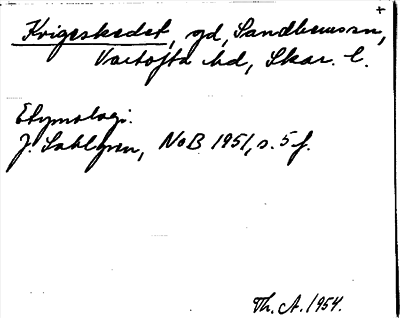 +
Krigeskedet, gd, Sandhemssn,
Vartofta hd, Skar. l.
Etymologi.
J. Sahlgren, NoB 1951, s. 5 f.
Th. A. 1954.